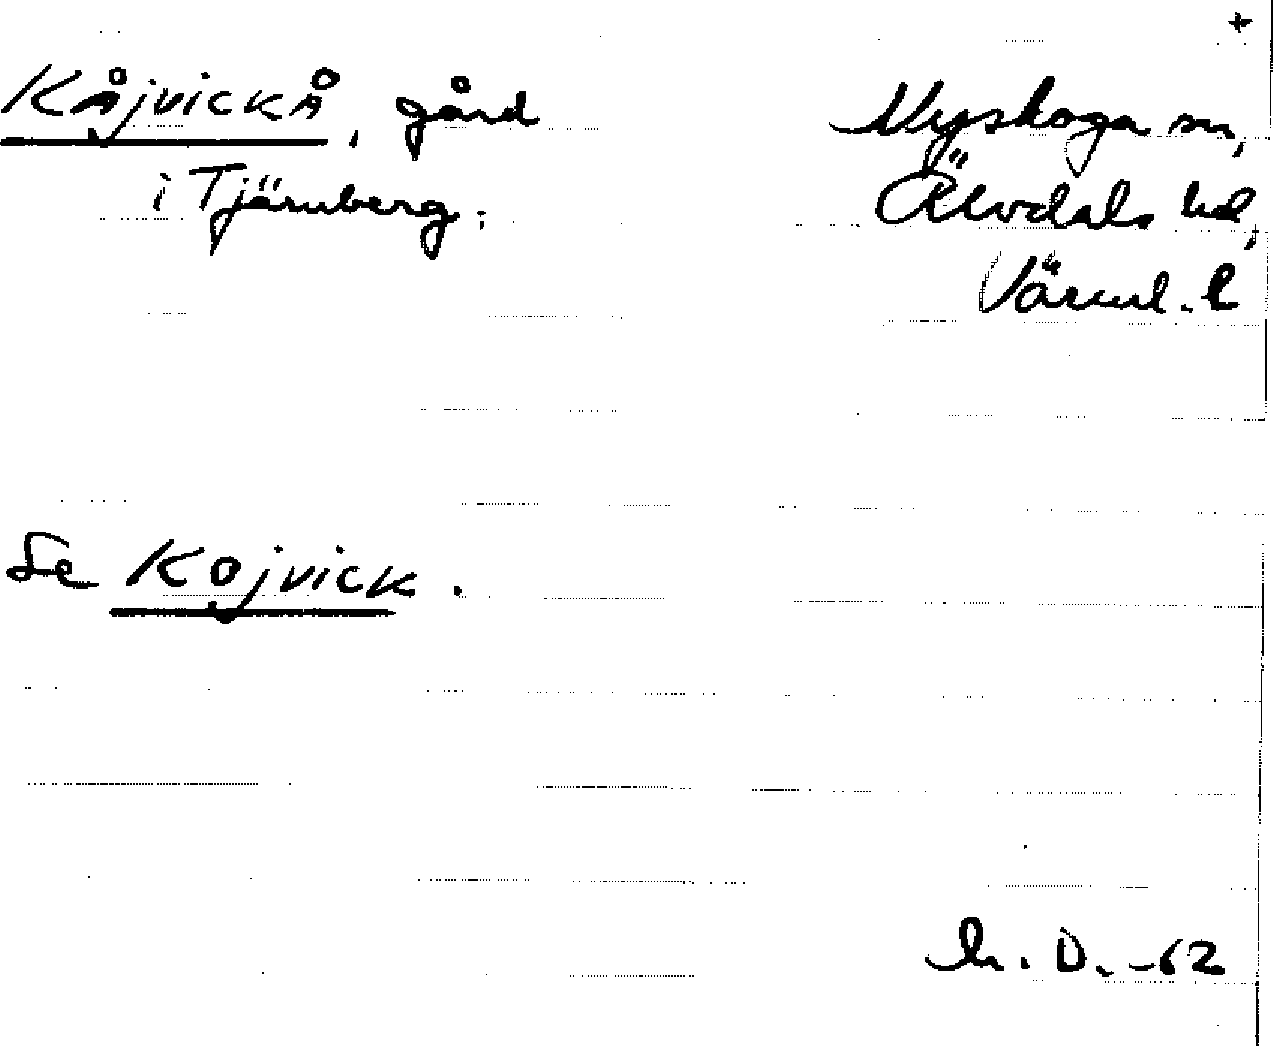 +
KÅJVICKÅ, gård
i Tjärnberg.
Nyskoga sn,
Älvdals hd,
Värml. l
Se KOJVICK.
h. D. -62